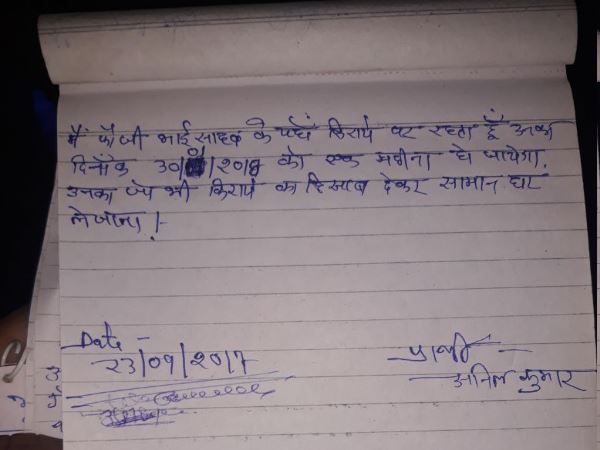 मैं फौजी भाई साहब के यहाँ किराये पर रहता हूँ उनका
दिनाँक 30/09/2017 को एक महीना हो जायेगा,
उनका जो भी किराये का हिसाब देकर सामान घर
ले जाना !-
Date -
23/09/2017
प्रार्थी
अनिल कुमार